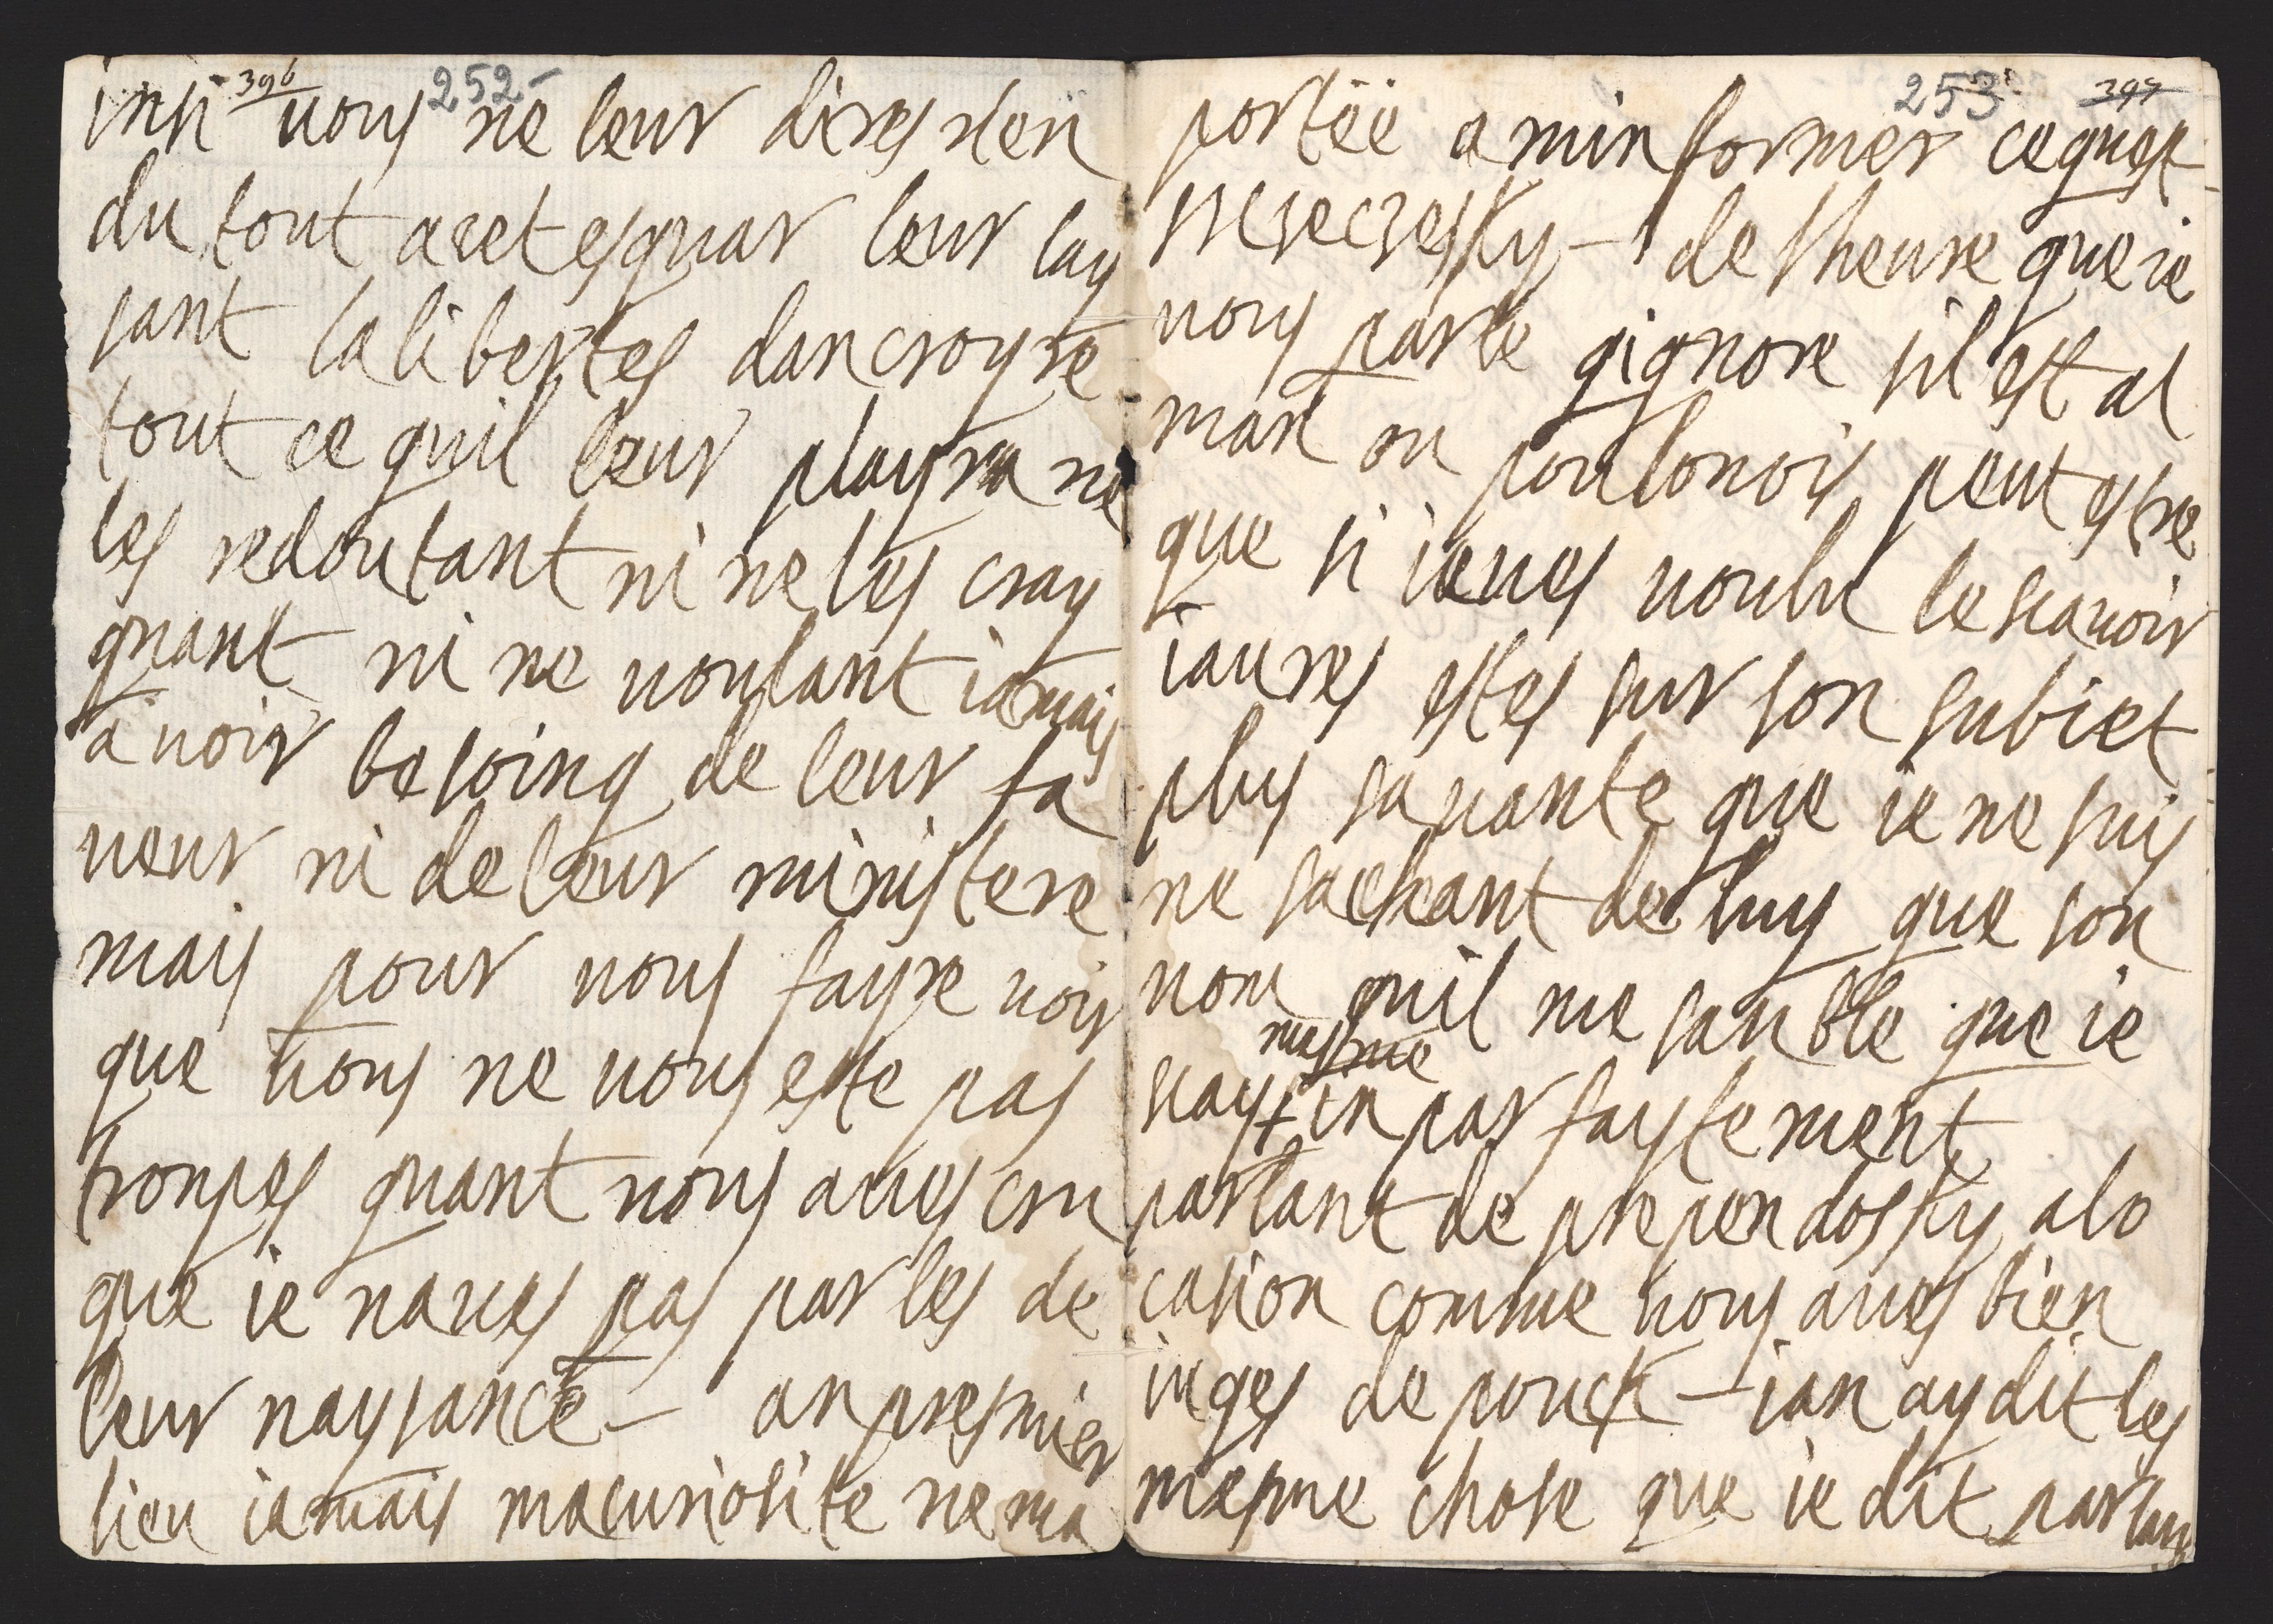 396 252
insi vous ne leur dires rien
du tout a cet esguar leur lay
sant la libertes dan croyre
tout ce quil leur playra ne
les redoutant ni ne les cray
gnant ni ne voulant iamais
avoir besoing de leur fa
veur ni de leur ministere
mais pour vous fayre voir
que vous ne vous este pas
tronpes quant vous aves cru
que ie naves pas parles de
leur naysance an presmier
lieu iamais ma curiosite ne ma
253 397
portëe a minformer ce quest
de lheure que ie
vous parle gignore sil est al
man ou poulonois peut estre
que si ieues voulu le scavoir
iaures estes sur son subiet
plus savante que ie ne suis
ne sachant de luy que son
nom quil me sanble que ie
mesme
scay in parfaytement
parlant de prependosky a lo
casion comme vous aves bien
iuges de ponck ian ay dit les
mesme chose que ie dit parlan